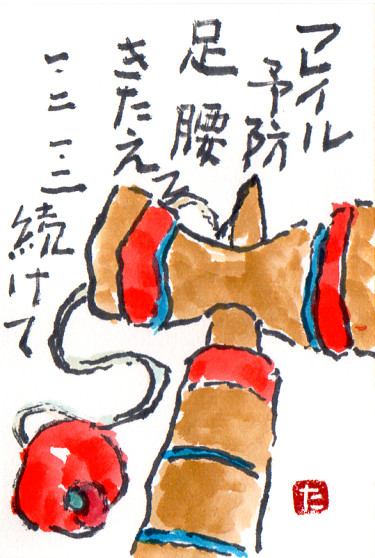 フレイル
予防
足腰
きたえて
一・二 一・二
続けて
た